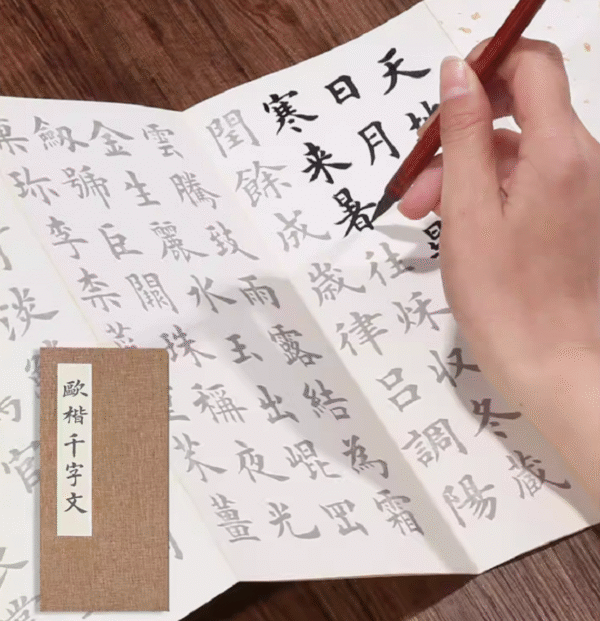 天地
日月
寒来暑往秋收冬藏
閏餘成歲律呂調陽
雲騰致雨露結為霜
金生麗水玉出崐岡
劒號巨闕珠稱夜光
珎李柰重芥薑
淡
官
歐楷千字文